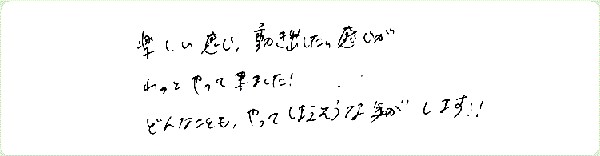 楽しい感じ、動き出したい感じが
わっとやって来ました!
どんなことも、やってしまえそうな気がします!!